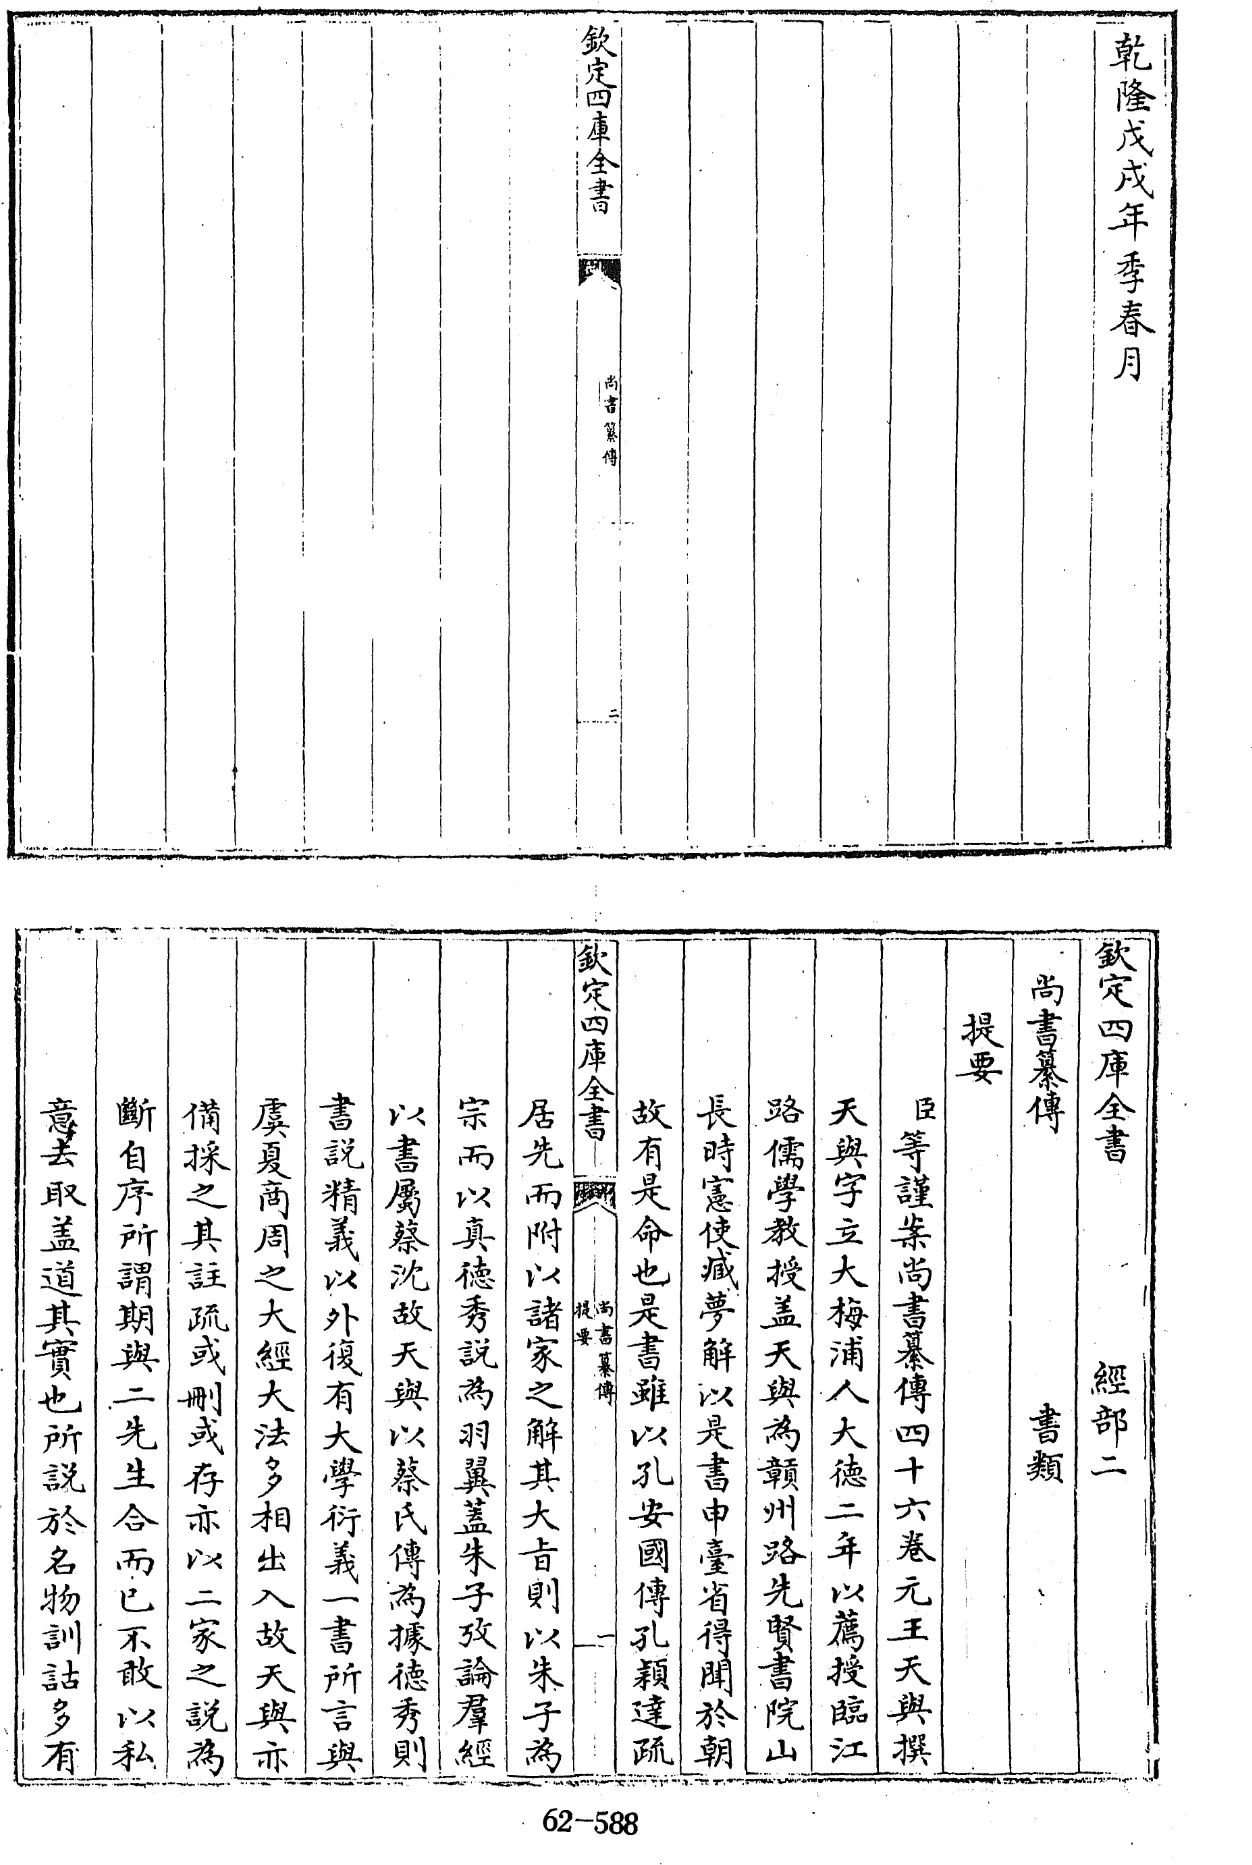 乾隆戊戌年季春月
欽定四庫全書
尚書纂傳
二
欽定四庫全書 經部二
尚書纂傳 書類
提要
臣等謹案尚書纂傳四十六卷元王天與撰
天與字立大梅浦人大德二年以薦授臨江
路儒學教授盖天與為贑州路先賢書院山
長時憲使臧夢解以是書申臺省得聞於朝
故有是命也是書雖以孔安國傳孔穎達疏
欽定四庫全書
尚書纂傳
提要
一
居先而附以諸家之解其大旨則以朱子為
宗而以真德秀説為羽翼蓋朱子攷論羣經
以書屬蔡沈故天與以蔡氏傳為據德秀則
書説精義以外復有大學衍義一書所言與
虞夏商周之大經大法多相出入故天與亦
備採之其註疏或刪或存亦以二家之説為
斷自序所謂期與二先生合而已不敢以私
意去取盖道其實也所説於名物訓詁多有
62-588